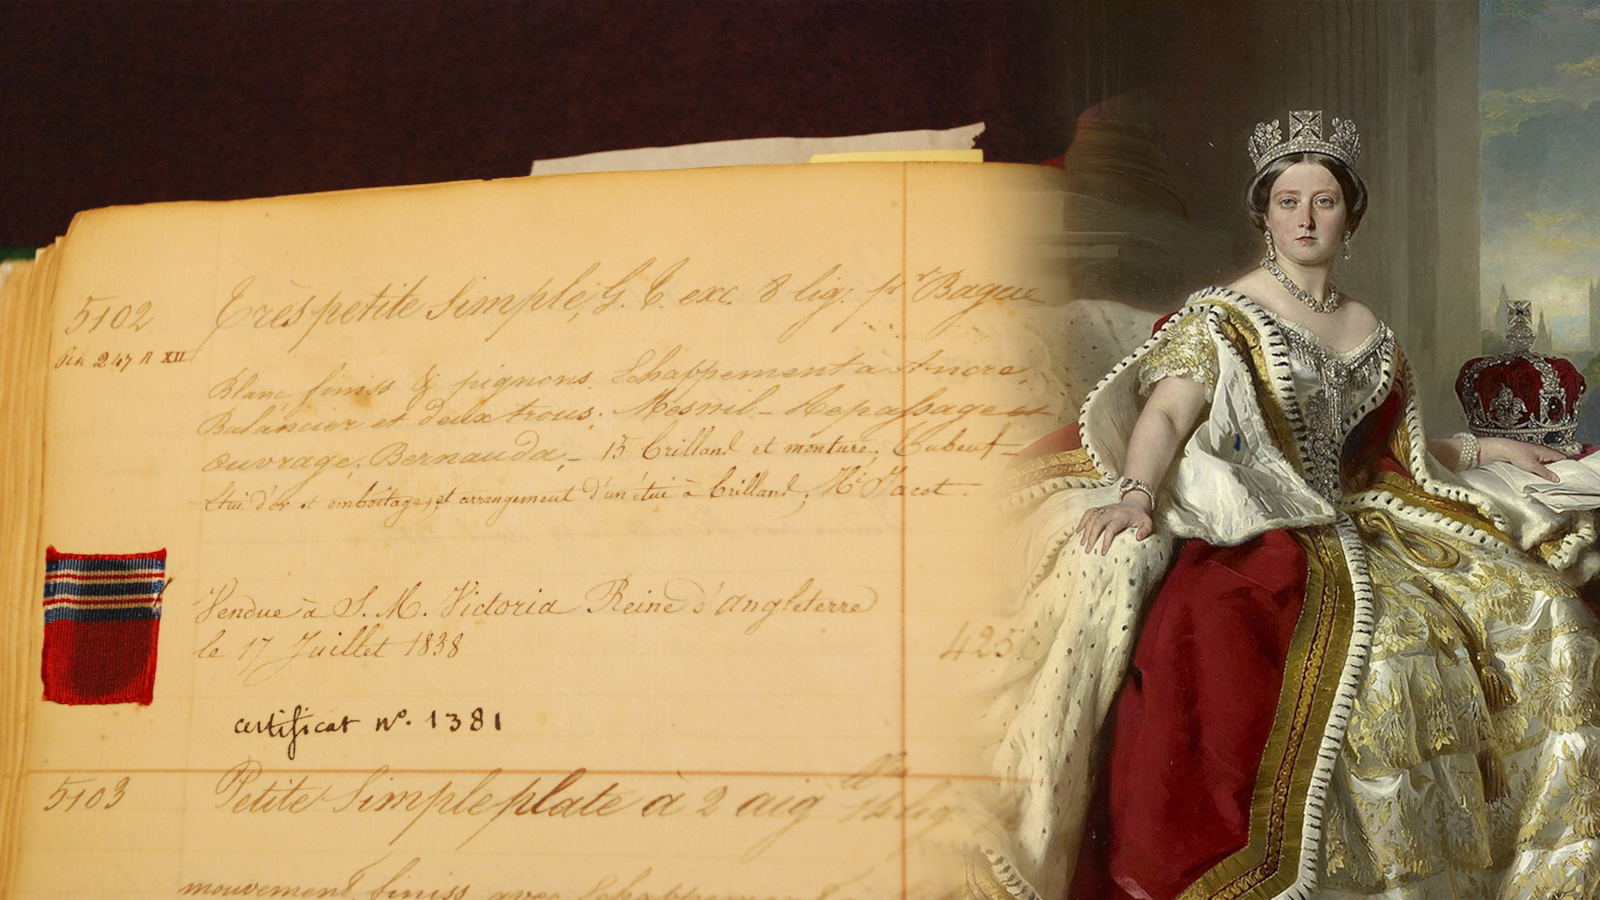 5102 Très petite Simple, G. C. exc. 8 lig: pr Bague
247 A XII
Blanc finiss & pignons. Echappement à Ancre,
Balancier et deux trous; Mesnil - Repassage et
ouvrage, Bernauda, - 15 brilland et monture, Tubeuf -
Etui d'or et emboîtage, et arrangement d'un étui à brilland, Mr Jacot.
Vendue à S. M. Victoria Reine d'Angleterre
le 17 Juillet 1838
425
certificat nº. 1381
5103 Petite Simple plate à 2 aig
mouvement finiss avec